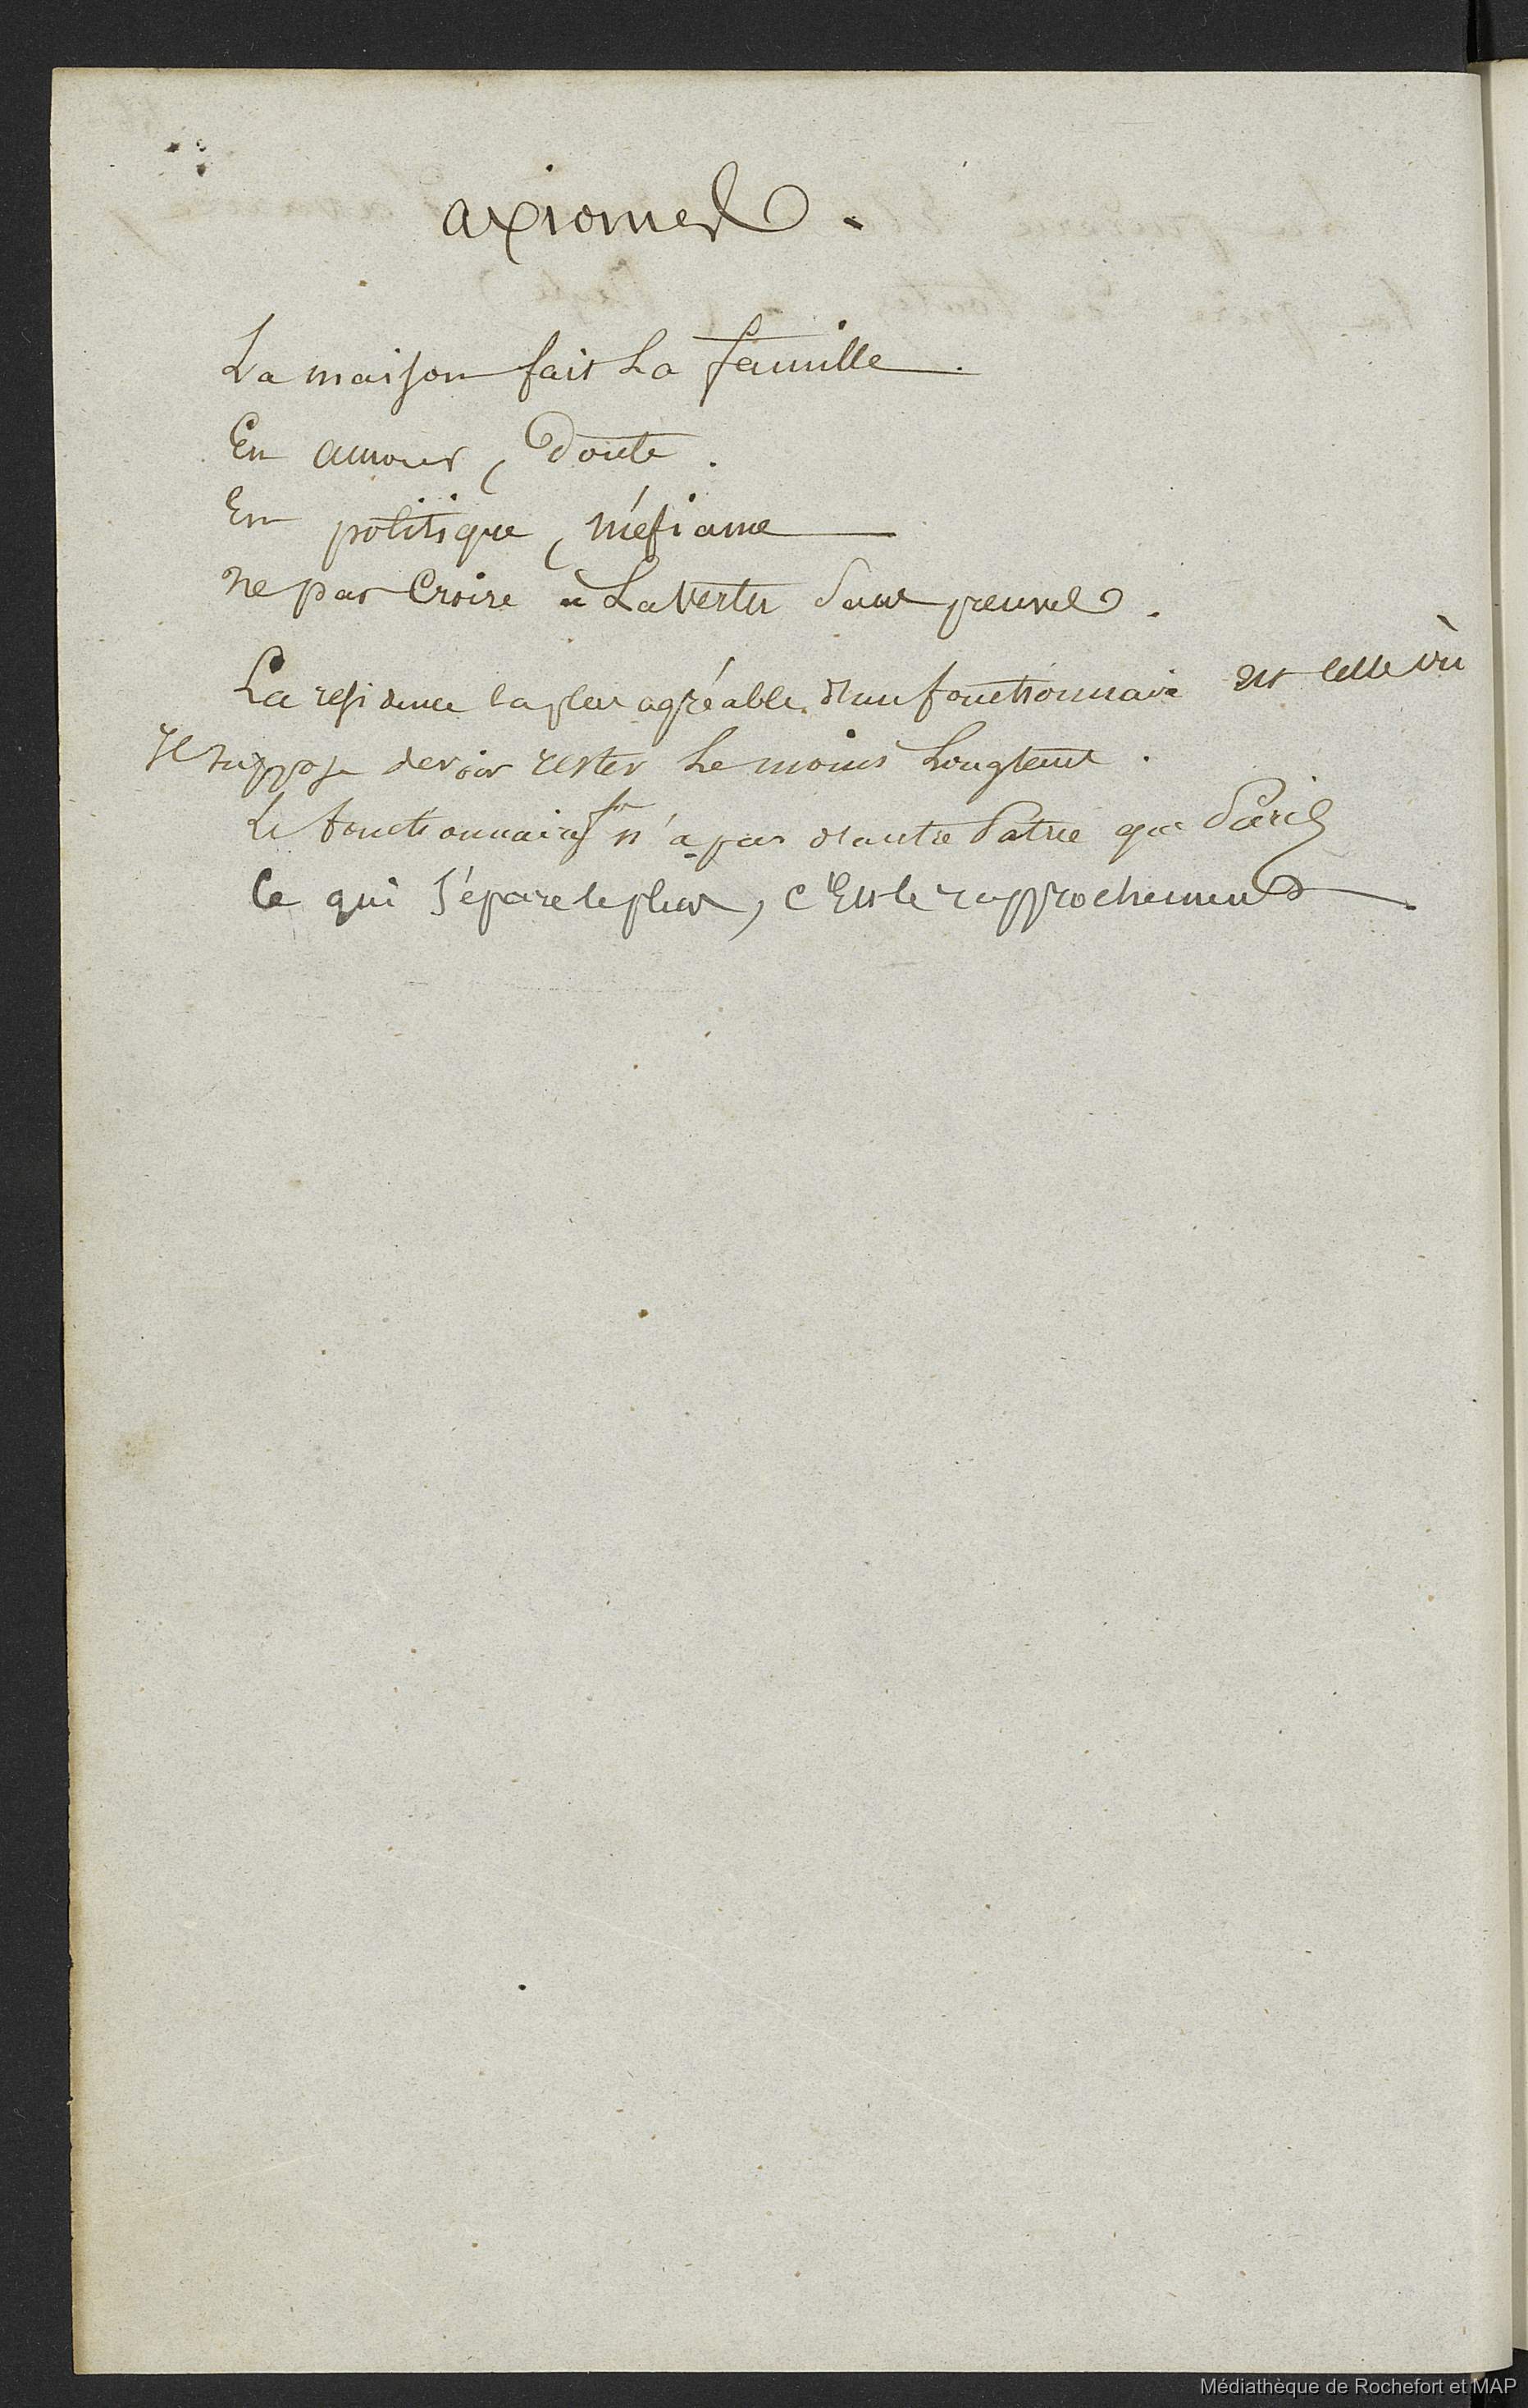 axiomes.
La maison fait La famille.
En amour, Doute.
En politique, méfiance
Ne pas Croire a La Vertu Sans preuves.
La residence la plus agréable d'un fonctionnaire est celle où
Il suppose devoir rester Le moins Longtems.
Le fonctionnaire n'a pas d'autre Patrie que Paris
Ce qui Sépare le plus, c'Est le rapprochement
Médiathèque de Rochefort et MAP